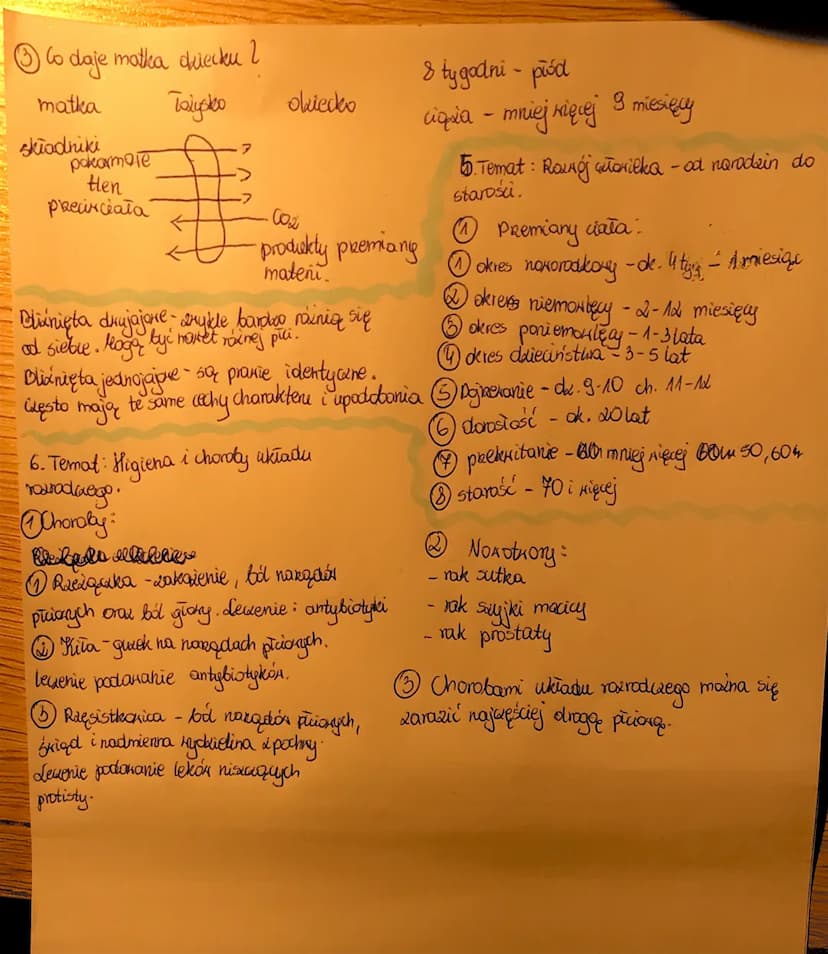 ③ Co daje matka dziecku?
matka łożysko dziecko
składniki
pokarmowe
tlen
przeciwciała
CO2
produkty przemiany
materii.
Bliźnięta dwujajowe - zwykle bardzo różnią się
od siebie. Mogą być nawet różnej płci.
Bliźnięta jednojajowe - są prawie identyczne.
Często mają te same cechy charakteru i upodobania
8 tygodni - płód
ciąża - mniej więcej 9 miesięcy
5. Temat: Rozwój człowieka - od narodzin do
starości.
① Przemiany ciała:
① okres noworodkowy - ok. 4 tyg - 1 miesiąc
② okres niemowlęcy - 2-12 miesięcy
③ okres poniemowlęcy - 1-3 lata
④ okres dzieciństwa - 3-5 lat
⑤ Dojrzewanie - dz. 9-10 ch. 11-12
⑥ dorosłość - ok. 20 lat
⑦ przekwitanie - mniej więcej 50, 60
⑧ starość - 70 i więcej
6. Temat: Higiena i choroby układu
rozrodczego.
① Choroby:
① Rzeżączka - zakażenie, ból narządów
płciowych oraz ból głowy. Leczenie: antybiotyki
② Kiła - guzek na narządach płciowych.
leczenie podawanie antybiotyków.
③ Rzęsistkowica - ból narządów płciowych,
świąd i nadmierna wydzielina z pochwy.
Leczenie podawanie leków niszczących
protisty.
② Nowotwory:
- rak sutka
- rak szyjki macicy
- rak prostaty
③ Chorobami układu rozrodczego można się
zarazić najczęściej drogą płciową.